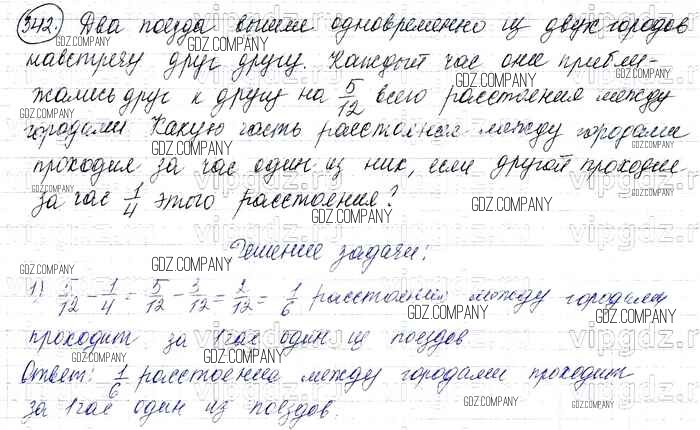 342. Два поезда вышли одновременно из двух городов
навстречу друг другу. Каждый час они прибли-
жались друг к другу на 5/12 всего расстояния между
городами. Какую часть расстояния между городами
проходил за час один из них, если другой проходил
за час 1/4 этого расстояния?
Решение задачи:
1) 5/12 - 1/4 = 5/12 - 3/12 = 2/12 = 1/6 расстояния между городами
проходит за 1 час один из поездов
Ответ: 1/6 расстояния между городами проходит
за 1 час один из поездов.
GDZ.COMPANY
vipgdz.ru